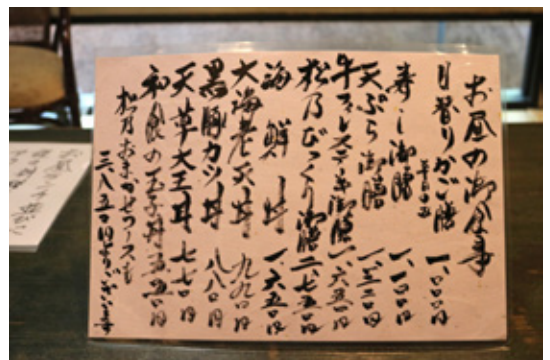 お昼の御食事
日替りかご膳 一、〇〇〇円
平日のみ
寿し御膳 一、一〇〇円
天ぷら御膳 一、三二〇円
牛ヒレステーキ御膳 一、六五〇円
松乃びっくり御膳 二、七五〇円
海鮮丼 一、六五〇円
大海老天丼 九九〇円
黒豚カツ丼 八八〇円
天草大王丼 七七〇円
和食の玉子丼 五五〇円
松乃おまかせコースも
三、八五〇円よりございます